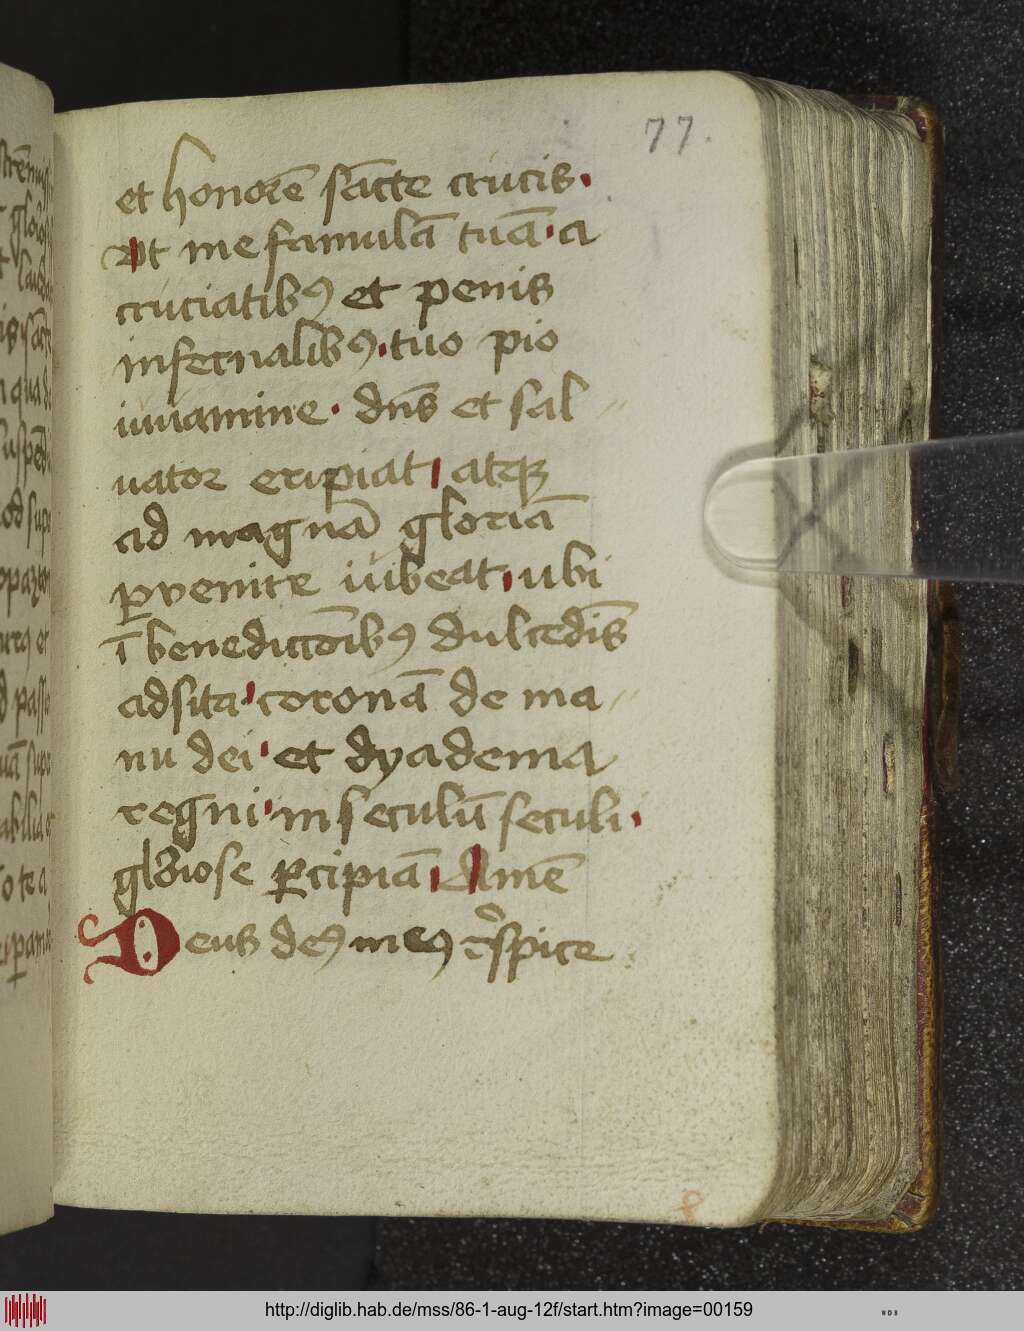 77.
et honorē sācte crucis.
Ut me famulā tuā. a
cruciatibꝰ et penis
infernalibꝰ. tuo pio
iuuamine. dn̄s et sal〃
uator eripiat, atqꝫ
ad magnā gloriā
ꝑvenire iubeat, ubi
ī benedictōibꝰ dulcedīs
adsita. coronā de ma〃
nu dei. et dyadema
regni. in seculū seculi.
gloriose ꝑcipiā, Amē
Deus deꝰ meꝰ rͦspice
http://diglib.hab.de/mss/86-1-aug-12f/start.htm?image=00159